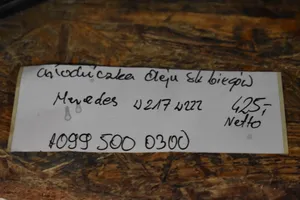 Chłodniczka Oleju sk biegów
Mercedes W217 W222 425,-
Netto
A099 500 0300